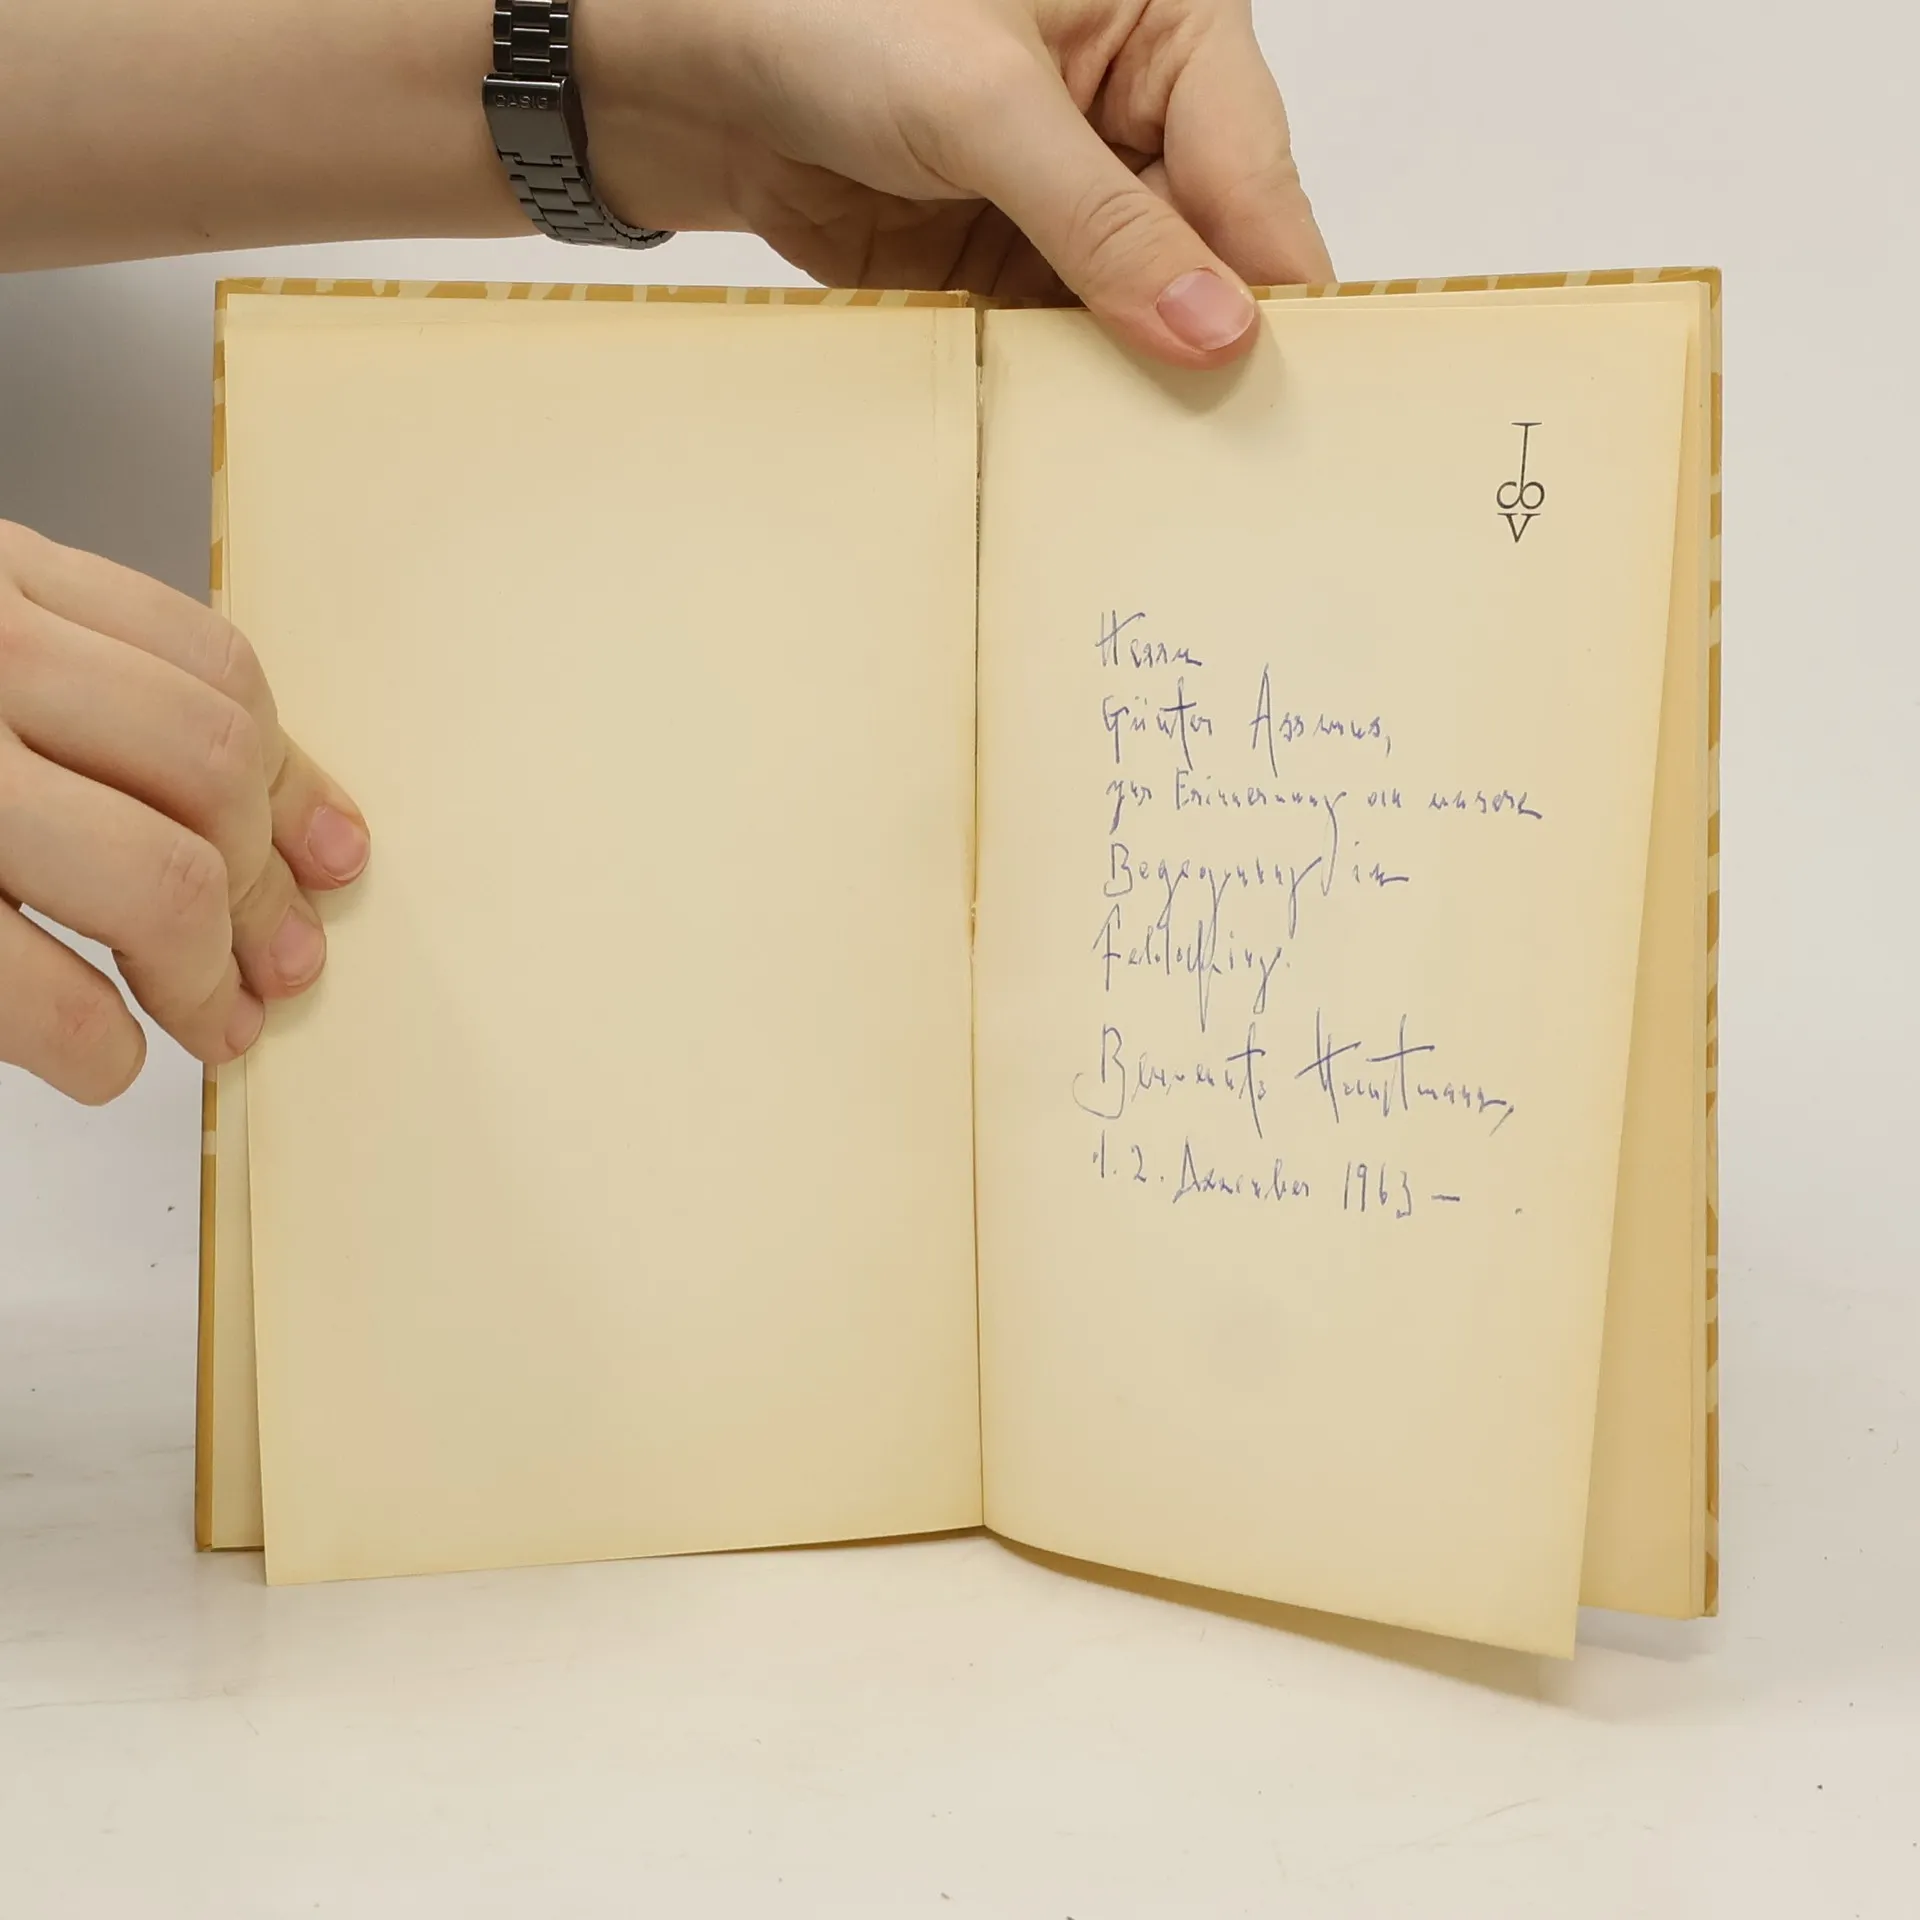 CASIO
Herrn
Günter Assmus,
zur Erinnerung an unsere
Begegnung in
Feldafing.
Benvenuto Hauptmann,
1. 2. Dezember 1963 –